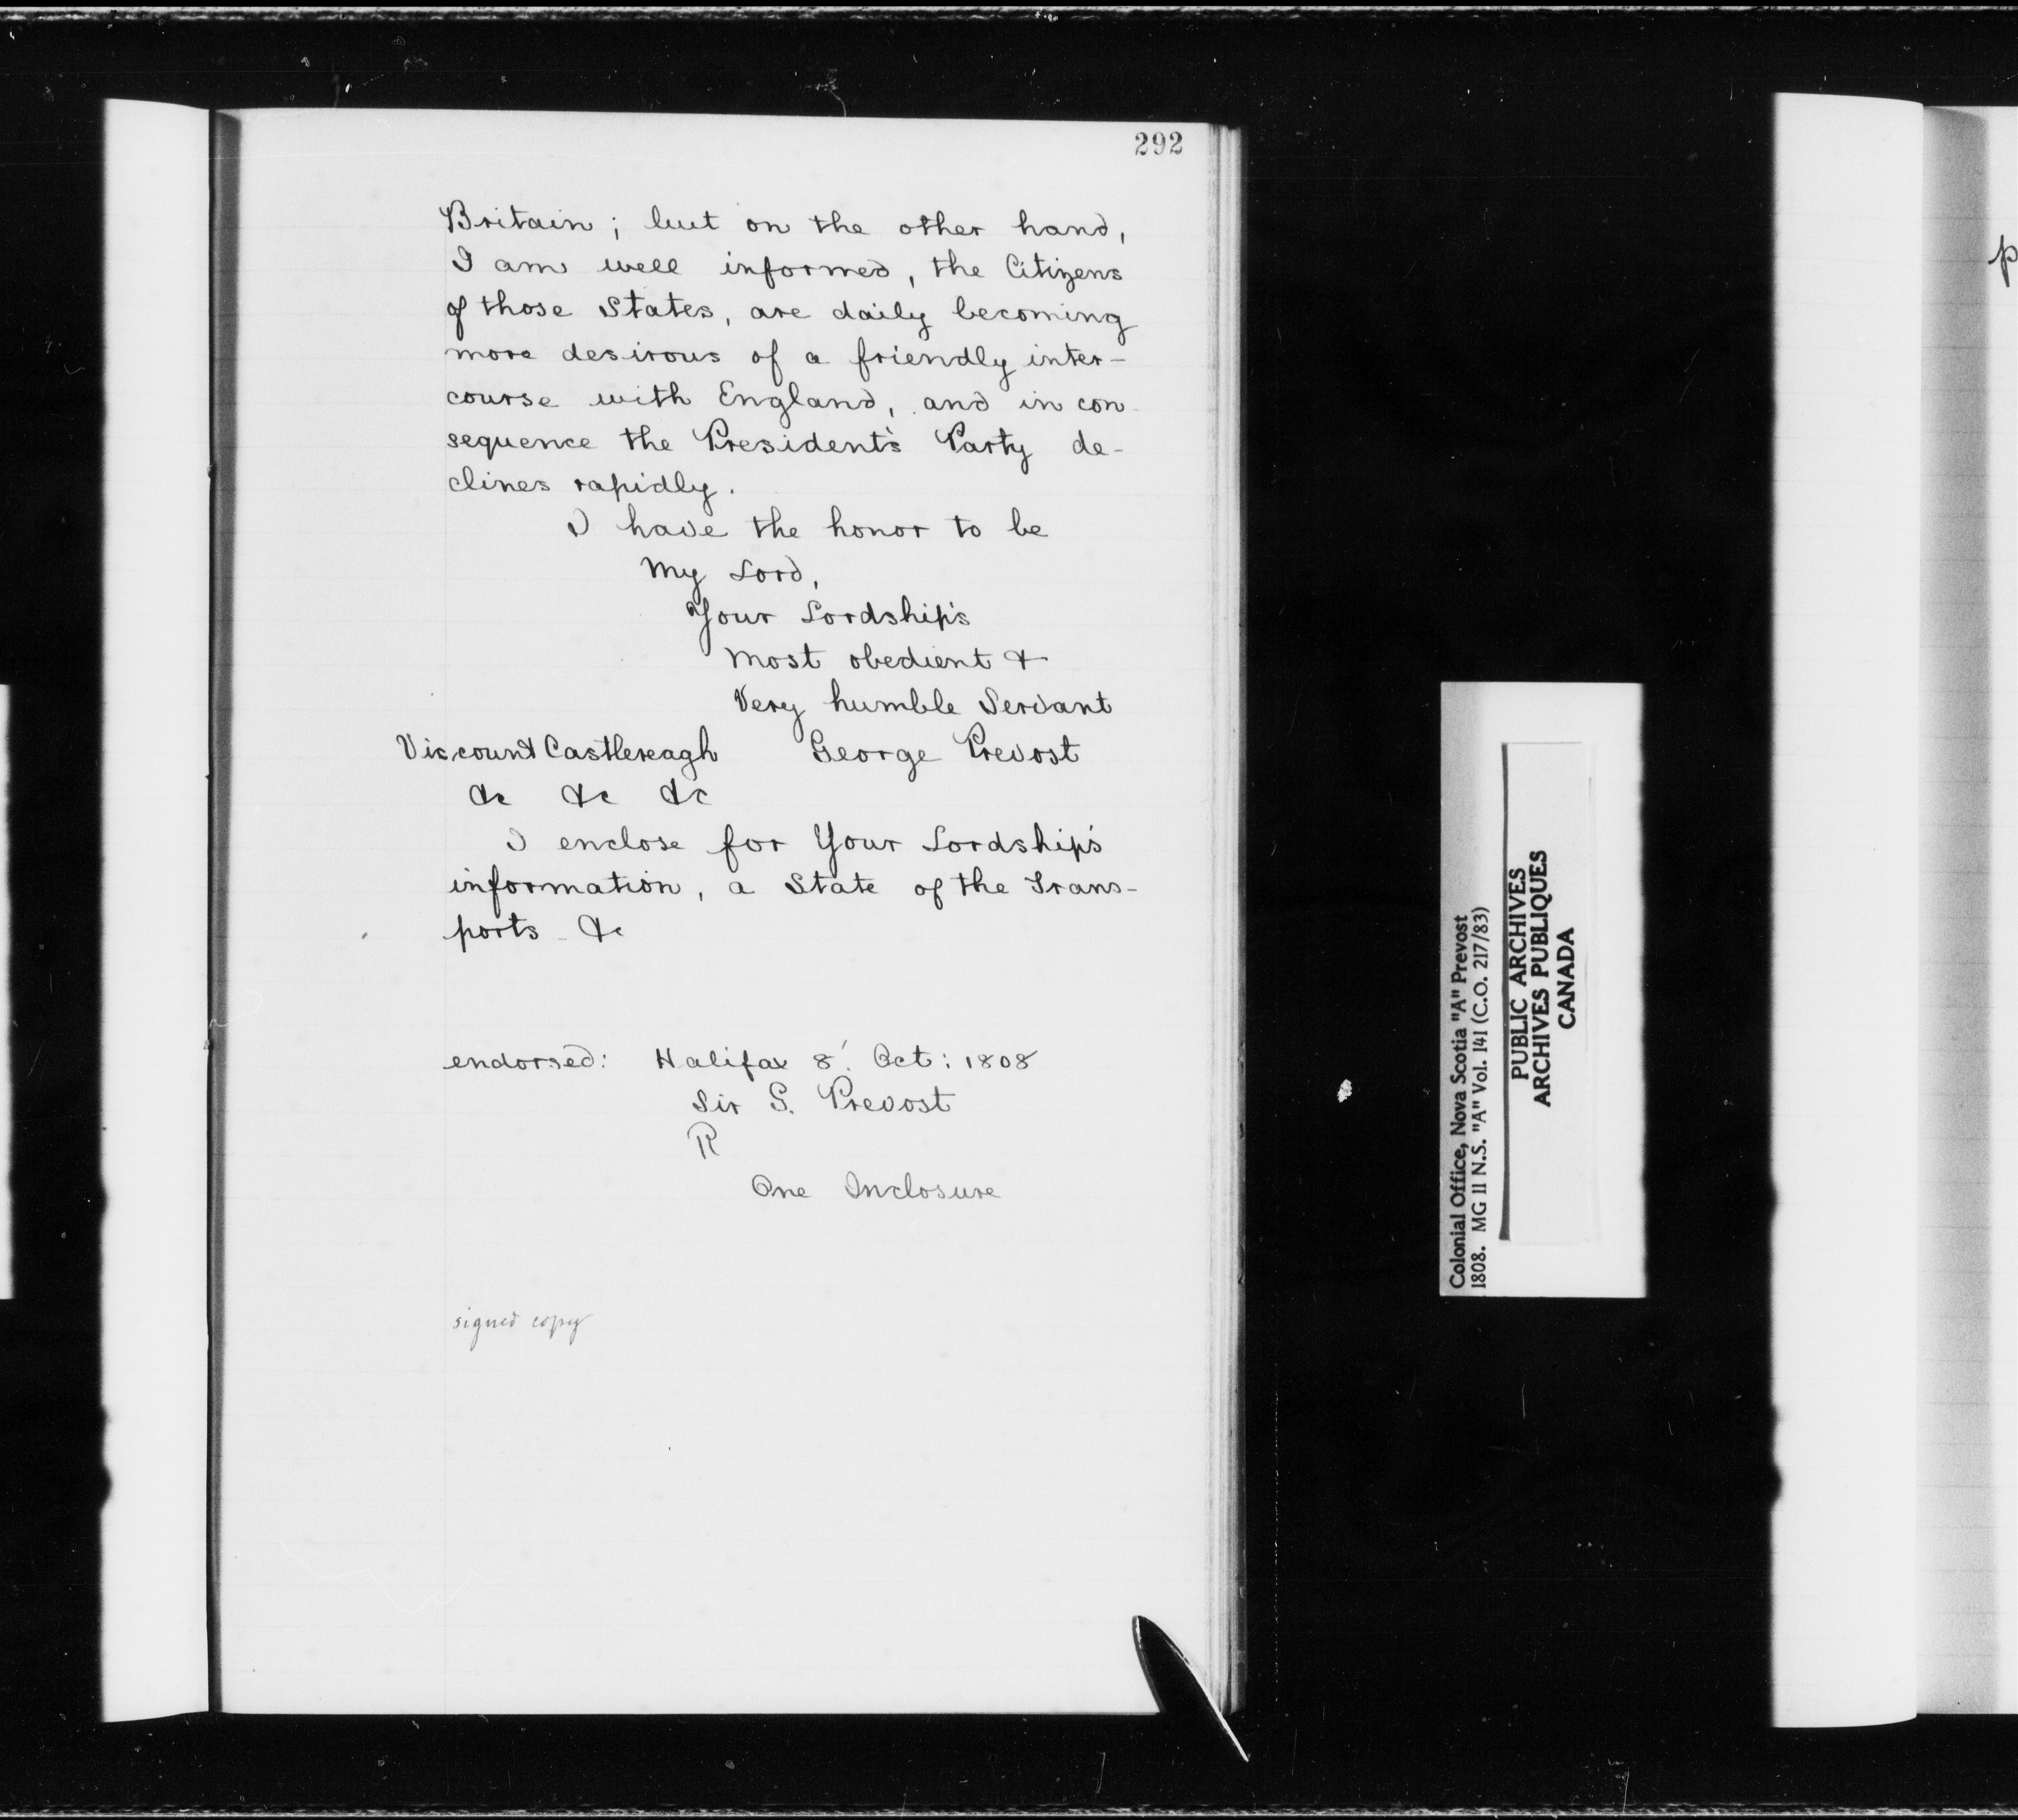 292
Britain; but on the other hand,
I am well informed, the Citizens
of those States, are daily becoming
more desirous of a friendly inter-
course with England, and in con-
sequence the President's Party de-
clines rapidly.
I have the honor to be
My Lord,
Your Lordship's
Most obedient &
Very humble Servant
Viscount Castlereagh George Prevost
&c &c &c
I enclose for Your Lordship's
information, a State of the Trans-
ports - &c
endorsed: Halifax 8'. Oct: 1808
Sir G. Prevost
R
One Inclosure
signed copy
Colonial Office, Nova Scotia "A" Prevost
1808. MG 11 N.S. "A" Vol. 141 (C.O. 217/83)
PUBLIC ARCHIVES
ARCHIVES PUBLIQUES
CANADA
p